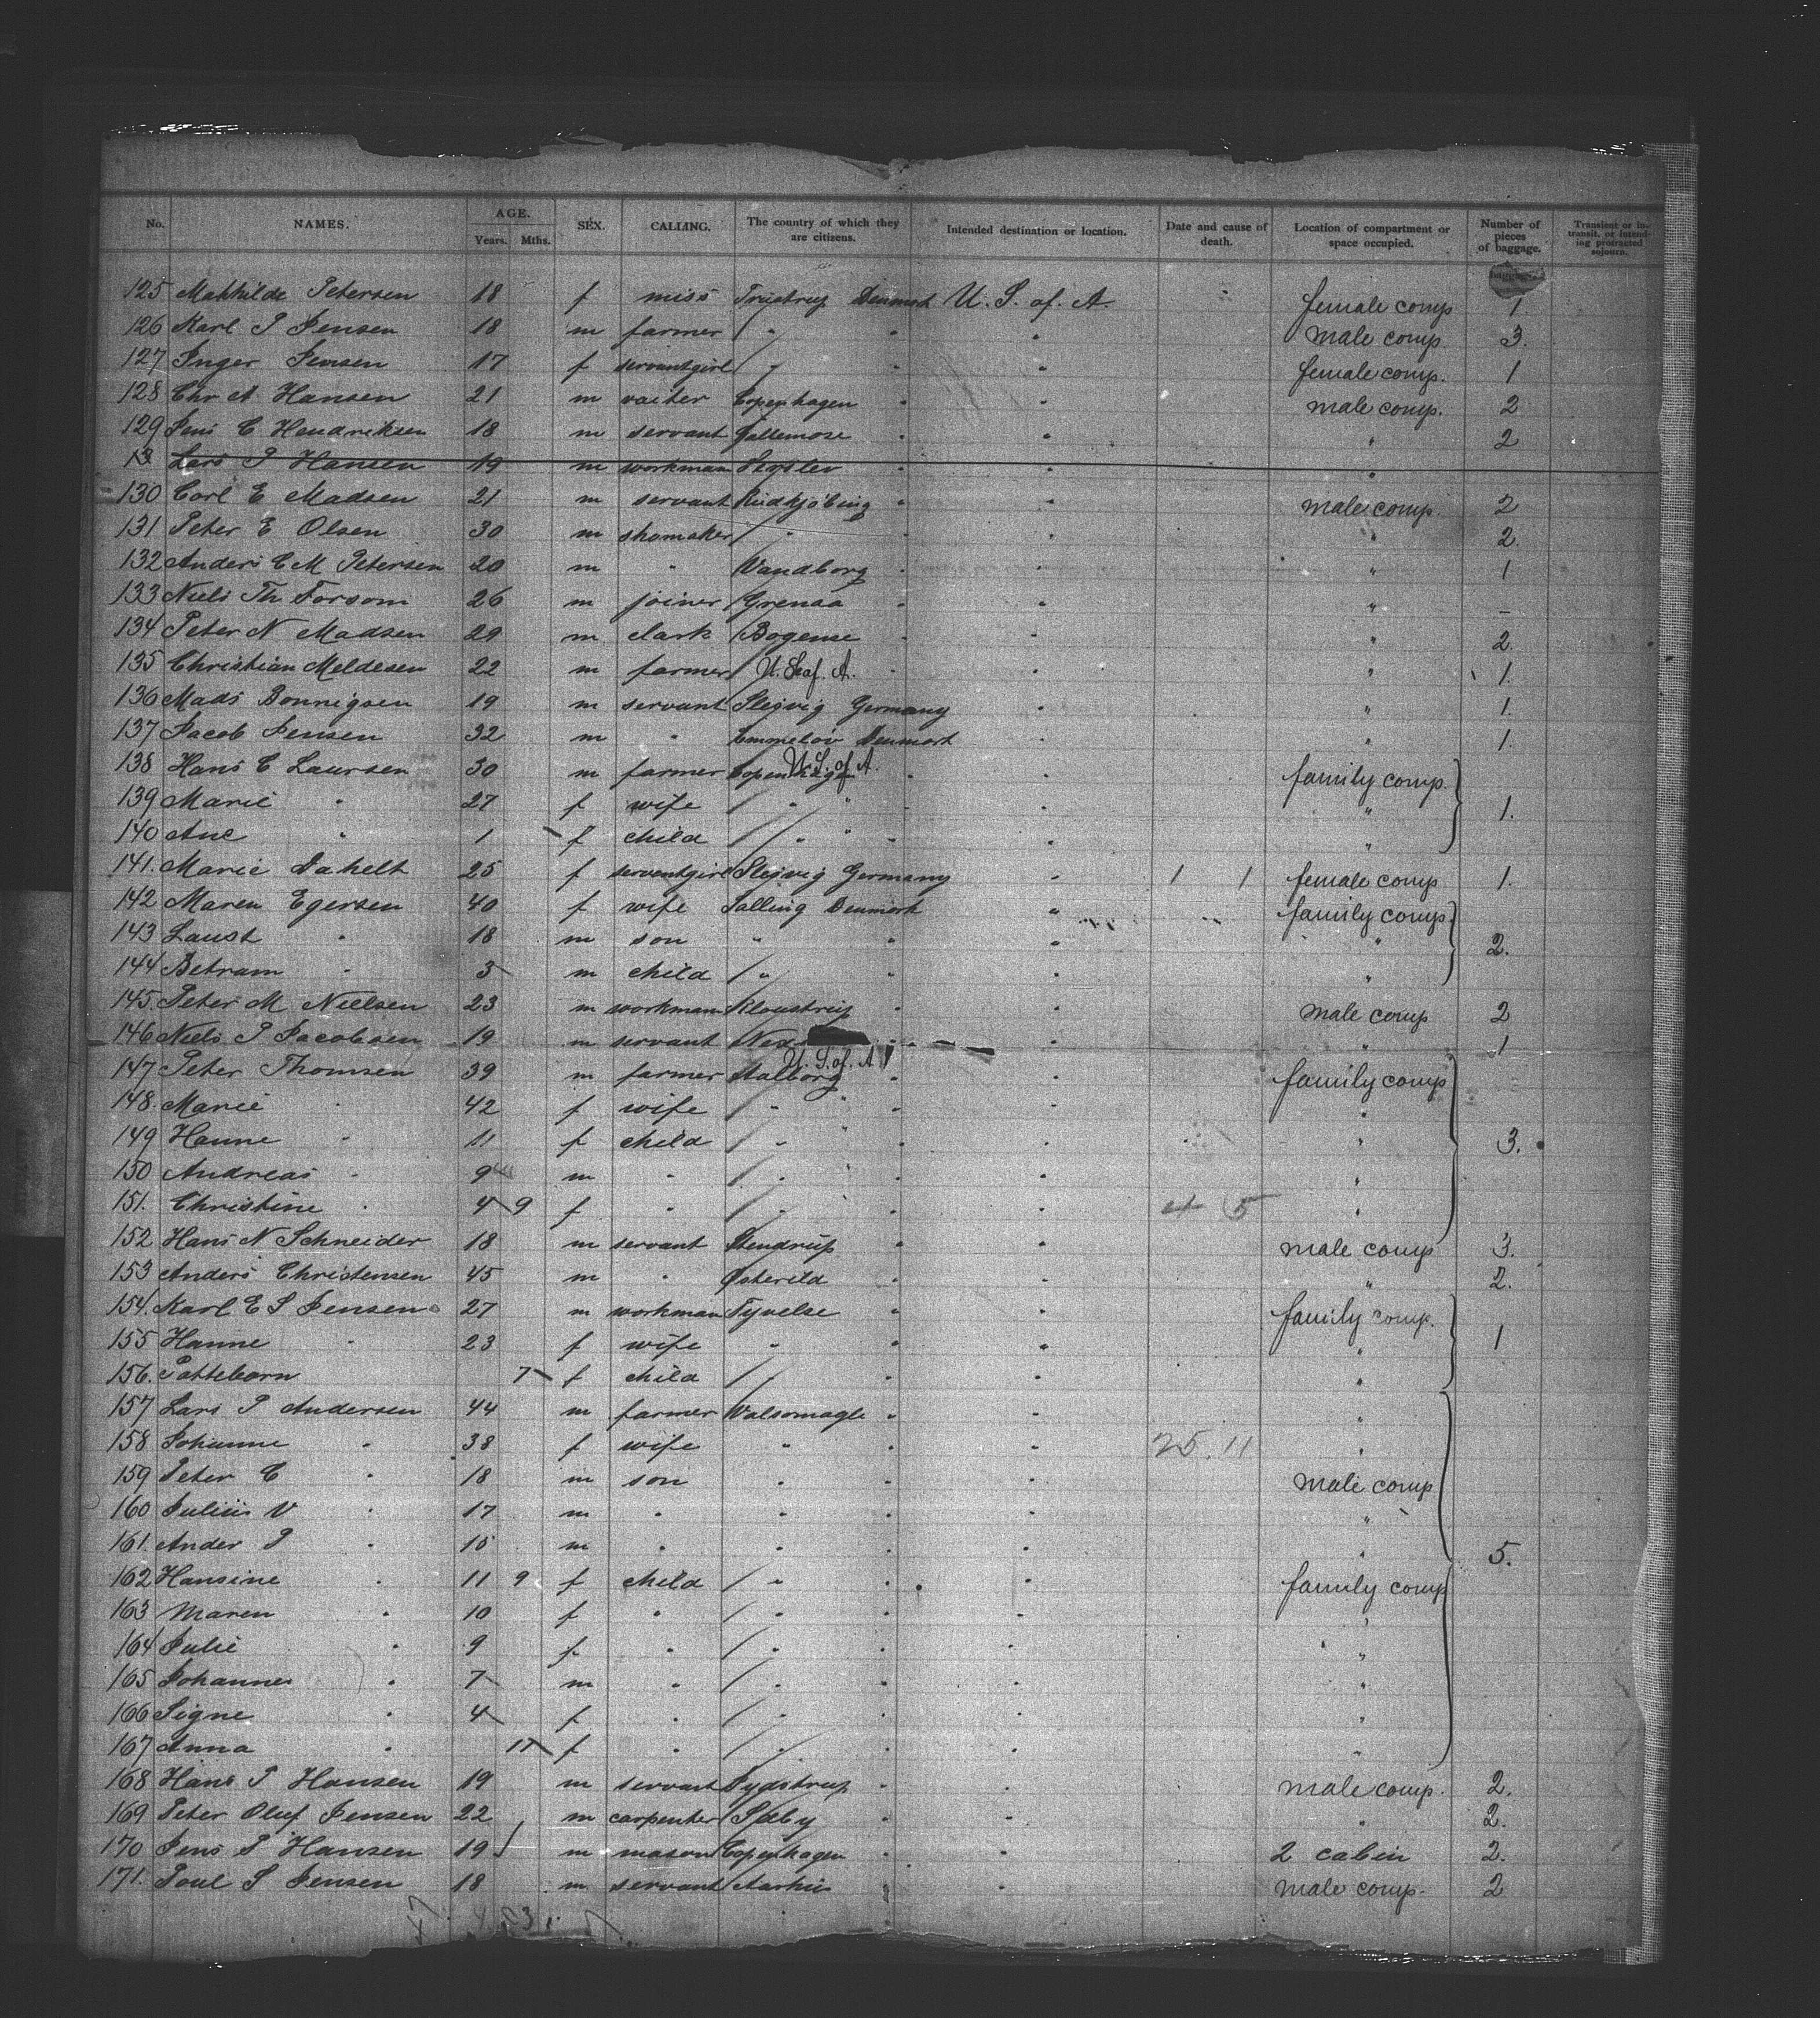 No. NAMES. AGE. Years. Mths. SEX. CALLING. The country of which they are citizens. Intended destination or location. Date and cause of death. Location of compartment or space occupied. Number of pieces of baggage. Transient or in transit, or intending protracted sojourn.
125 Mathilde Petersen 18 f miss Denmark U. S. of. A. female comp 1.
126 Karl P Jensen 18 m farmer " " " male comp 3.
127 Inger Jensen 17 f servantgirl " " " female comp. 1
128 Chr A Hansen 21 m vaiter Copenhagen " " male comp. 2
129 Jens C Hendriksen 18 m servant " " " 2
13 Lars P Hansen 19 m workman " " "
130 Carl E Madsen 21 m servant Rudkjöbing " " male comp. 2
131 Peter E Olsen 30 m shomaker " " " " 2.
132 Anders C M Petersen 20 m " " " " 1
133 Niels Th 26 m joiner Grenaa " " " –
134 Peter N Madsen 29 m clark Bogense " " " 2.
135 Christian Meldesen 22 m farmer U. S. of. A. " " " 1.
136 Mads Bonnigsen 19 m servant Slesvig Germany " " 1.
137 Jacob Jensen 32 m " Emmelöv Denmark " " 1.
138 Hans C Laursen 30 m farmer Copenhagen U. S. of A. " " family comp.
139 Marie " 27 f wife " " " " " 1.
140 Ane " 1 f child " " " " "
141. Marie Dahelt 25 f serventgirl Slesvig Germany " 1 1 female comp 1.
142 Maren Egersen 40 f wife Salling Denmark " family comp.
143 Laust " 18 m son " " " " 2.
144 Betram " 3 m child " " " "
145. Peter M Nielsen 23 m workman " " male comp 2
146 Niels P Jacobsen 19 m servant " " " 1
147 Peter Thomsen 39 m farmer Aalborg U. S. of. A " " family comp
148. Marie " 42 f wife " " " " "
149 Hanne " 11 f child " " " " " 3.
150 Andreas " 9 m " " " " " "
151. Christine " 4 9 f " " " " 5 "
152 Hans N Schneider 18 m servant Stendrup " " male comp 3.
153 Anders Christensen 45 m " Østerild " " " 2.
154. Karl E S Jensen 27 m workman Tyvelse " " family comp.
155 Hanne " 23 f wife " " " " 1
156. Pattebarn 7 f child " " "
157 Lars P Andersen 44 m farmer Walsomagle " " "
158 Johanne " 38 f wife " " 25. 11 "
159 Peter C " 18 m son " " " male comp
160 Julius V " 17 m " " " " "
161. Ander P " 15 m " " " " " 5.
162 Hansine " 11 9 f child " " " family comp
163 Maren " 10 f " " " " "
164 Julie " 9 f " " " " "
165 Johannes " 7 m " " " " "
166 Signe " 4 f " " " " "
167 Anna " f " " " " "
168 Hans P Hansen 19 m servant " " male comp. 2.
169 Peter Oluf Jensen 22 m carpenter Sæby " " " 2.
170 Jens P Hansen 19 m mason Copenhagen " " 2 cabin 2.
171. Poul S Jensen 18 m servant Aarhus " " male comp. 2